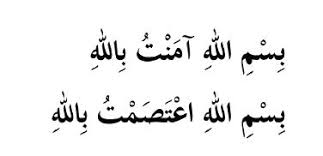 بِسْمِ اللهِ آمَنْتُ بِاللهِ
بِسْمِ اللهِ اعْتَصَمْتُ بِاللهِ